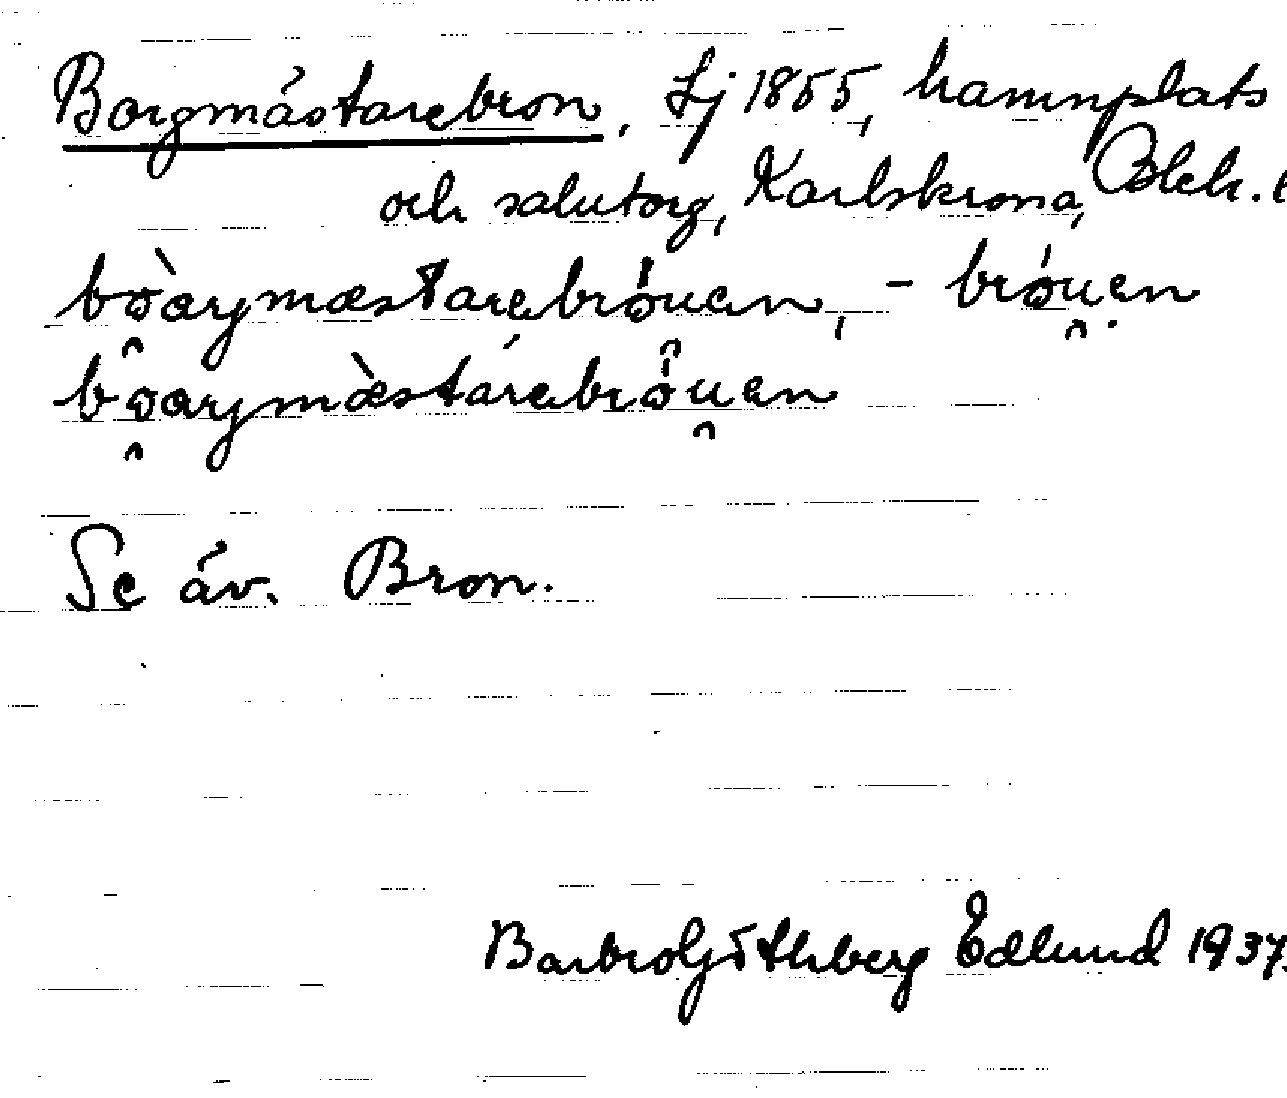 Borgmästarebron, Lj 1855, hamnplats
och salutorg, Karlskrona, Blek.
bòarymæstarebróuen, - bróuen
boarymæ̀stárebróuen
Se äv. Bron.
Barbro Göthberg Edlund 1937.